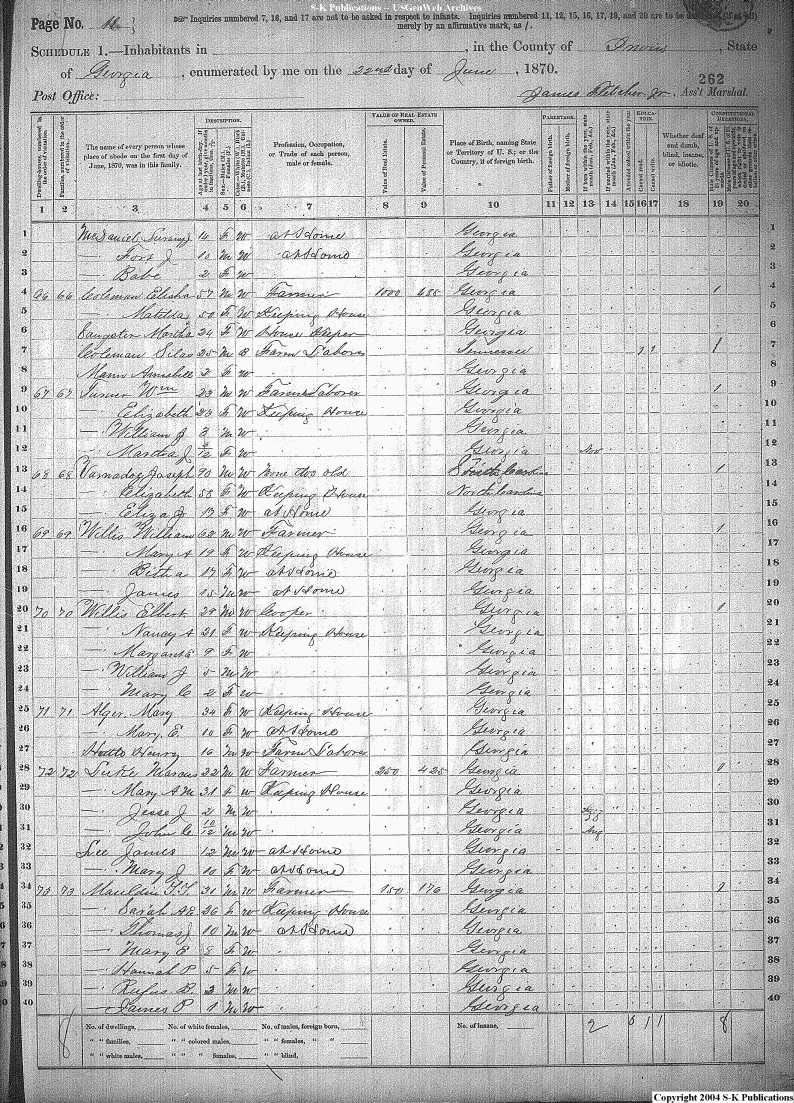 S-K Publications -- USGenWeb Archives
Inquiries numbered 7, 16, and 17 are not to be asked in respect to infants. Inquiries numbered 11, 12, 15, 16, 17, 19, and 20 are to be answered (if at all)
Page No.
merely by an affirmative mark, as /.
Schedule 1.—Inhabitants in , in the County of Irwin , State
of Georgia , enumerated by me on the 22nd day of June , 1870.
262
Post Office: James Fletcher Jr , Ass't Marshal.
Dwelling-houses, numbered in the order of visitation.
Families, numbered in the order of visitation.
The name of every person whose place of abode on the first day of June, 1870, was in this family.
Description.
Profession, Occupation, or Trade of each person, male or female.
Value of Real Estate owned.
Value of Real Estate.
Value of Personal Estate.
Place of Birth, naming State or Territory of U. S.; or the Country, if of foreign birth.
Parentage.
Father of foreign birth.
Mother of foreign birth.
Education.
Attended school within the year.
Cannot read.
Cannot write.
Whether deaf and dumb, blind, insane, or idiotic.
Constitutional Relations.
1 2 3 4 5 6 7 8 9 10 11 12 13 14 15 16 17 18 19 20
1 McDaniel 14 F W at Home Georgia 1
2 — Fort J 10 M W at Home Georgia 2
3 — Babe 2 F W Georgia 3
4 66 66 Coleman Elisha 57 M W Farmer 1000 Georgia 1 4
5 — Matilda 50 F W Keeping House Georgia 5
6 Sangster Martha 24 F W House Keeper Georgia 6
7 Coleman Silas 25 M B Farm Labores Tennessee 1 1 1 7
8 Mann Annabell 2 F W Georgia 8
9 67 67 Turner Wm 23 M W Farm Labores Georgia 1 9
10 — Elizabeth 23 F W Keeping House Georgia 10
11 — William J 3 M W Georgia 11
12 — Martha J F W Georgia Nov 12
13 68 68 Varnadoe Joseph 90 M W None too old South Carolina 1 13
14 — Elizabeth 58 F W Keeping House North Carolina 14
15 — Eliza J 17 F W at Home Georgia 15
16 69 69 Willis William 68 M W Farmer Georgia 1 16
17 — Mary A 19 F W Keeping House Georgia 17
18 — Bitha 17 F W at Home Georgia 18
19 — James 15 M W at Home Georgia 19
20 70 70 Willis Elbert 29 M W Cooper Georgia 1 20
21 — Nancy A 21 F W Keeping House Georgia 21
22 — 9 F W Georgia 22
23 — William J 5 M W Georgia 23
24 — Mary C 2 F W Georgia 24
25 71 71 Alger Mary 34 F W Keeping House Georgia 25
26 — Mary E. 10 F W at Home Georgia 26
27 Henry 16 M W Farm Labores Georgia 27
28 72 72 Luke Marcus 22 M W Farmer 250 425 Georgia 1 28
29 — Mary A M 31 F W Keeping House Georgia 29
30 — Jesse J 2 M W Georgia 30
31 — John C 10/12 M W Georgia Aug 31
32 Lee James 12 M W at Home Georgia 32
33 — Mary J 10 F W at Home Georgia 33
34 73 73 Mauldin 31 M W Farmer 150 176 Georgia 1 34
35 — Sarah A E 26 F W Keeping House Georgia 35
36 — Thomas J 10 M W at Home Georgia 36
37 — Mary E 8 F W Georgia 37
38 — Hannah P 5 F W Georgia 38
39 — Rufus B 3 M W Georgia 39
40 — James P 1 M W Georgia 40
8 No. of dwellings, No. of white females, No. of males, foreign born, No. of insane, 2 5 1 1 8
" " families, " " colored males, " " females, " "
" " white males, " " " females, " " blind,
Copyright 2004 S-K Publications